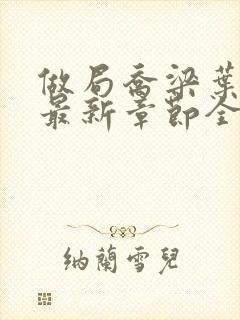 做局喬梁葉
最新章節全
納蘭雪兒